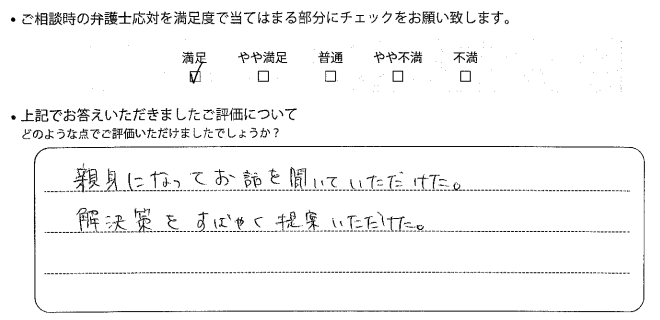 ・ご相談時の弁護士応対を満足度で当てはまる部分にチェックをお願い致します。
満足 やや満足 普通 やや不満 不満
☑ □ □ □ □
・上記でお答えいただきましたご評価について
どのような点でご評価いただけましたでしょうか？
親身になってお話を聞いていただけた。
解決策をすばやく提案いただけた。